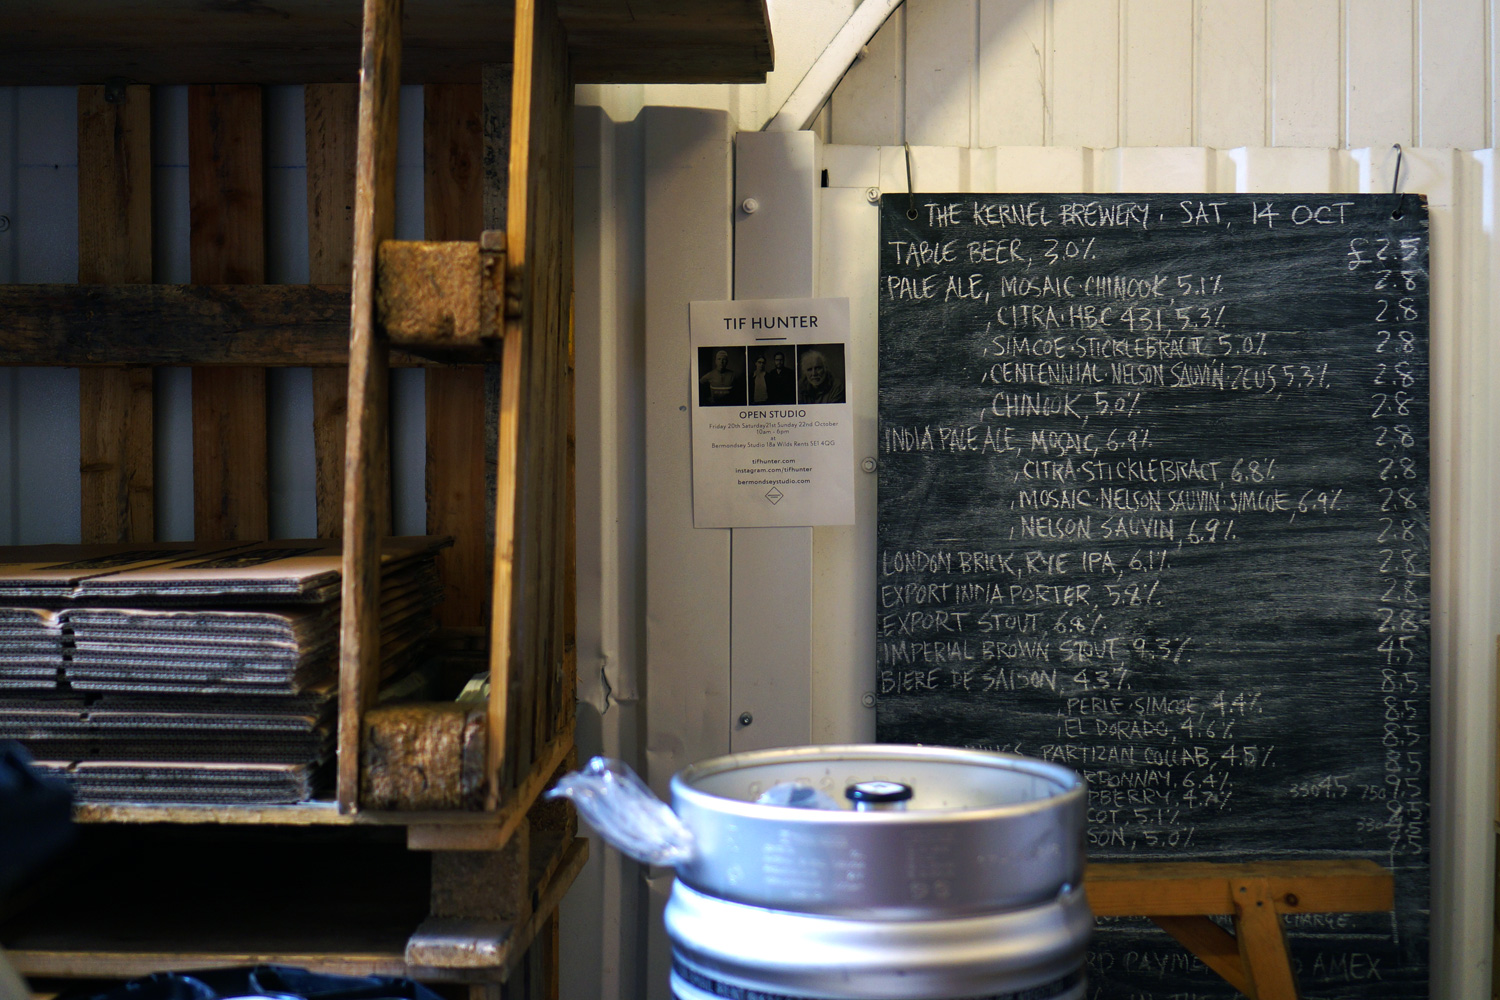 TIF HUNTER
OPEN STUDIO
Friday 20th Saturday 21st Sunday 22nd October
10am - 6pm
at
Bermondsey Studio 18a Wilds Rents SE1 4QG
tifhunter.com
instagram.com/tifhunter
bermondseystudio.com
THE KERNEL BREWERY. SAT, 14 OCT
TABLE BEER, 3.0% £2.5
PALE ALE, MOSAIC·CHINOOK, 5.1% 2.8
, CITRA·HBC 431, 5.3% 2.8
, SIMCOE·STICKLEBRACT, 5.0% 2.8
, CENTENNIAL·NELSON SAUVIN·ZEUS, 5.3% 2.8
, CHINOOK, 5.0% 2.8
INDIA PALE ALE, MOSAIC, 6.9% 2.8
, CITRA·STICKLEBRACT, 6.8% 2.8
, MOSAIC·NELSON SAUVIN·SIMCOE, 6.9% 2.8
, NELSON SAUVIN, 6.9% 2.8
LONDON BRICK, RYE IPA, 6.1% 2.8
EXPORT INDIA PORTER, 5.8% 2.8
EXPORT STOUT 6.8% 2.8
IMPERIAL BROWN STOUT 9.3% 4.5
BIERE DE SAISON, 4.3% 8.5
, PERLE·SIMCOE, 4.4% 8.5
, EL DORADO, 4.6% 8.5
PARTIZAN COLLAB, 4.5%
RDONNAY, 6.4%
PBERRY, 4.7% 350 4.5 750
COT, 5.1%
SON, 5.0%
CHARGE.
RD PAYME AMEX